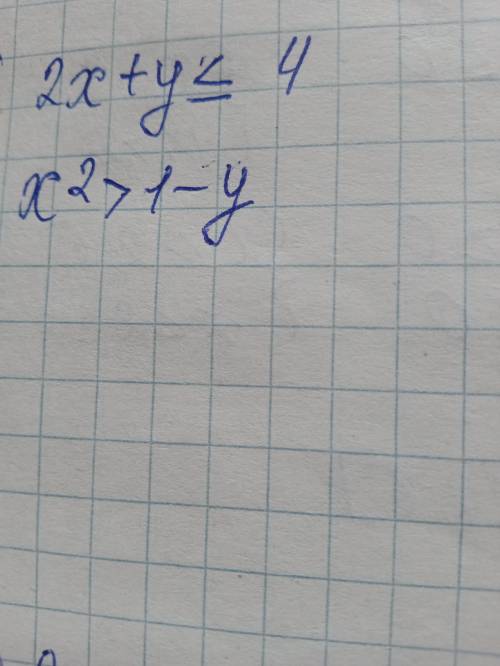 2x+y≤ 4
x²>1-y